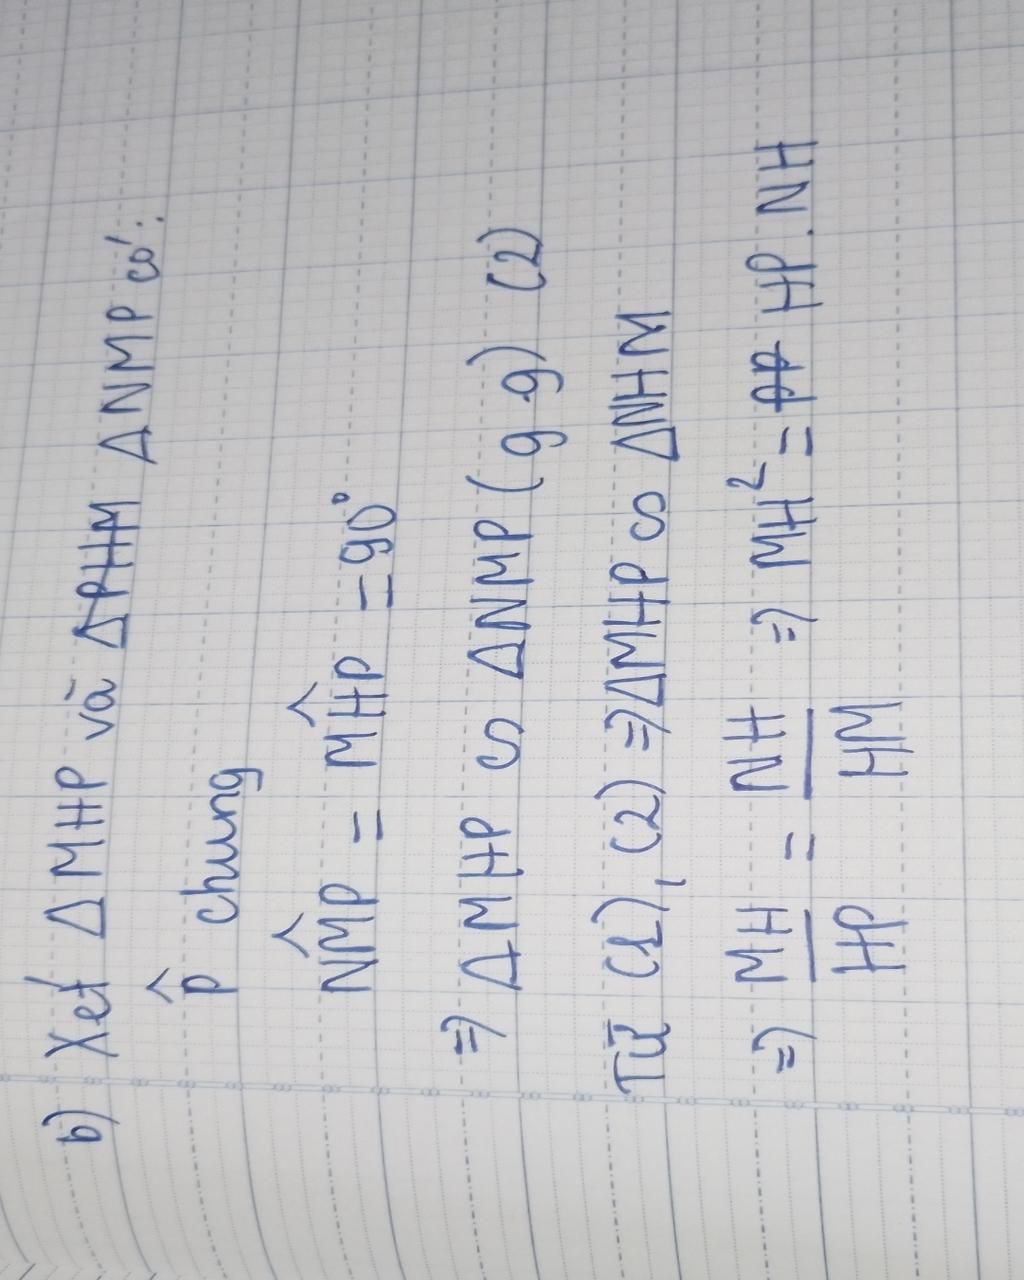 b) Xét ΔMHP và ΔPHM ΔNMP có:
P̂ chung
N̂MP = M̂HP = 90°
=> ΔMHP ∽ ΔNMP (g.g) (2)
Từ (1), (2) => ΔMHP ∽ ΔNHM
=> MH/HP = NH/HM => MH² = HP.NH